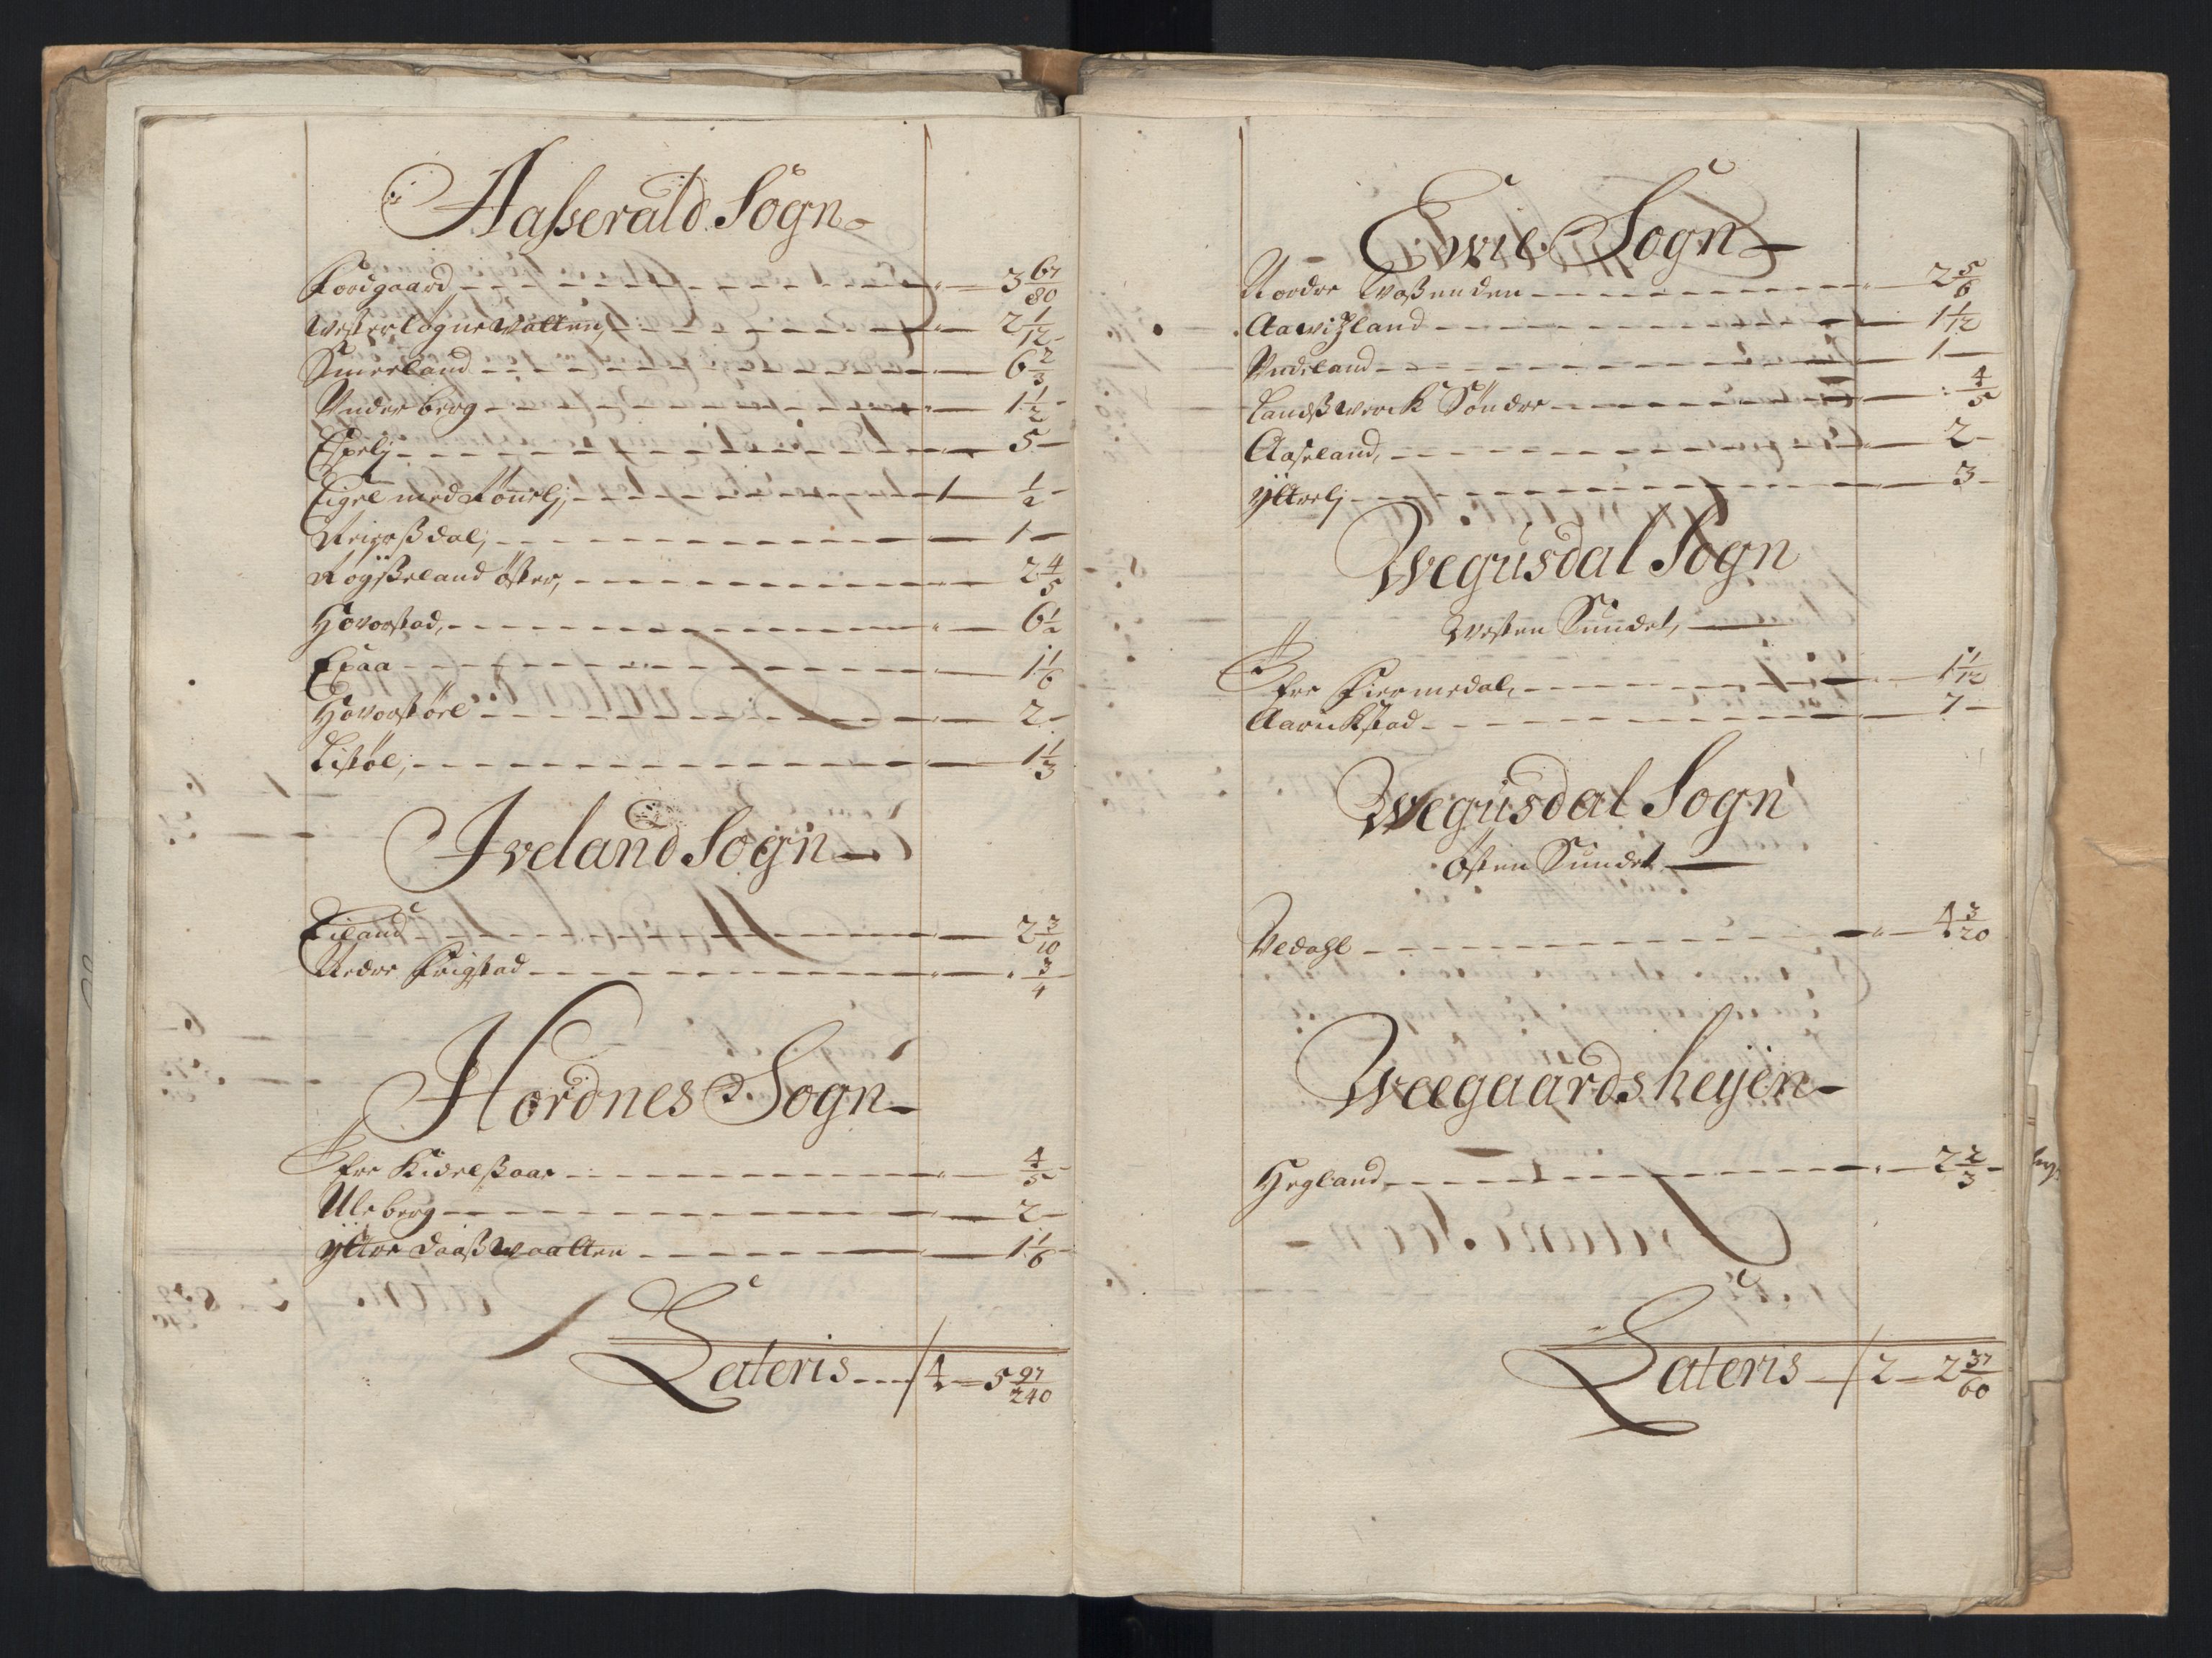 Aaßerald Sogn
Foordgaard — 3 67/80
Westerløgnewatten, — 2 1/12
Smerland — 6 2/3
Underberg — 1 1/2
Espelj — 5
Eigel med Rønelj, — 1 1/2
Reigaßdal, — 1
Røyßeland øster, — 2 4/5
Hovorstad, — 6 1/2
Espaa — 1 1/6
Hovorstøel — 2
Listøl, — 1 1/3
Iveland Sogn
Eiland — 2 3/10
Nedre Frigstad — 3/4
Hordnes Sogn
Øfre Kidelßaas — 4/5
Uleberg — 2
Ÿttre Daaßwaatten — 1 1/6
Lateris — 4 — 5 97/240
Ewie Sogn
Nordre Woßenden — 2 5/6
Aawitzland — 1 1/12
Undeland — 1
Landßwerck Søndre — 4/5
Aaseland, — 2
Ÿttrelj — 3
Wegusdal Sogn
Westen Sundet,
Øfre Fiermedal, — 1 1/12
Aarickstad — 7
Wegusdal Sogn
Østen Sundet
Vedahl — 4 3/20
Weegaardsheyen
Hegland, — 2 2/3
Lateris — 2 — 2 37/60